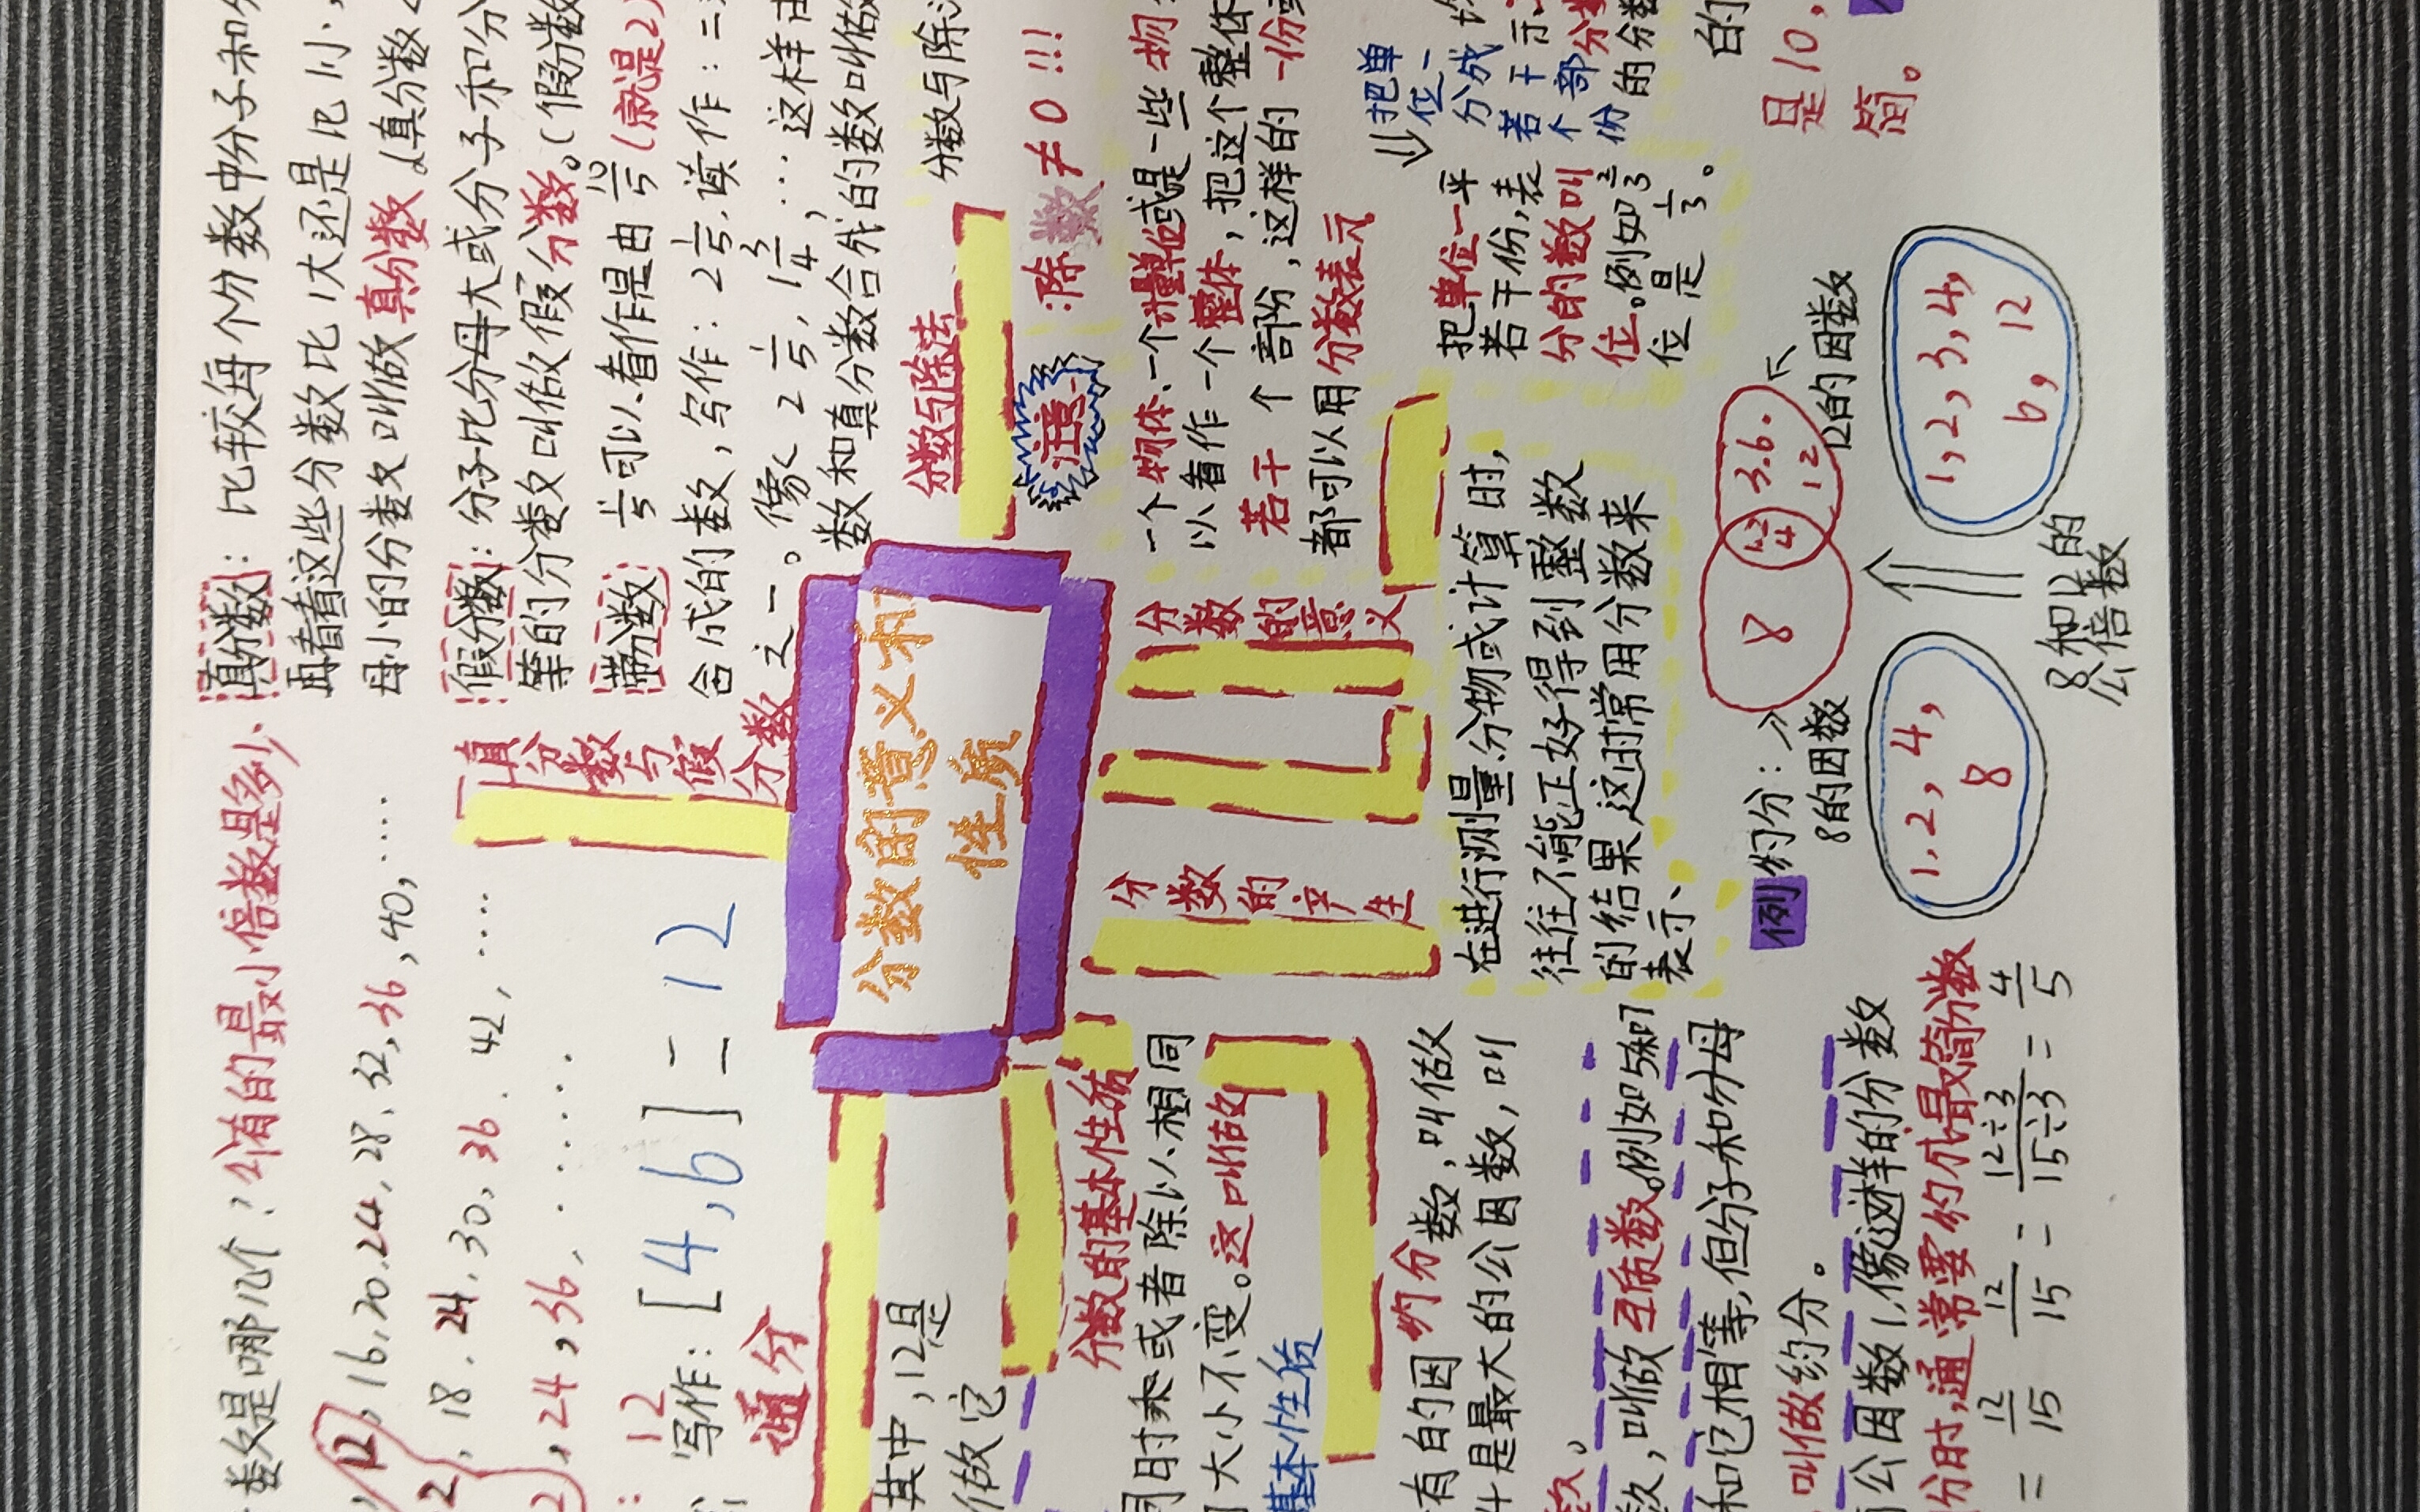 数是哪几个?公有的最小倍数是多少
12,16,20,24,28,32,36,40,……
12,18,24,30,36,42,……
12,24,36,……
:12 写作:[4,6]=12
通分
真分数与假分数
真分数:比较每个分数中分子和分
再看看这些分数比1大还是比1小,
母小的分数叫做真分数。(真分数<
假分数:分子比分母大或分子和分
等的分数叫做假分数。(假分数
带分数:11/5可以看作是由10/5(就是2)
合成的数,写作:2 1/5,读作:二
之一。像2 1/5,1 3/4,…这样由
数和真分数合成的数叫做
分数与除法
分数与除
注意:除数≠0!!!
分数的意义和
性质
其中,12是
做它
分数的基本性质
同时乘或者除以相同
大小不变。这叫做
基本性质
分数的产生
在进行测量、分物或计算时,
往往不能正好得到整数
的结果,这时常用分数来
表示、
分数的意义
一个物体、一个计量单位或是一些物
以看作一个整体,把这个整体
若干个部份,这样的一份或
都可以用分数表示
把单位一平
若干份,表
分的数叫
位。例如2/3
位是1/3。
⇒把单
位一
分成
若干
个部分
份的分数
约分
有的因数,叫做
是最大的公因数,叫
数。
数,叫做互质数。例如5和7
和它相等,但分子和分母
叫做约分。
公因数1,像这样的分数
分时,通常要约分成最简分数
=12/15 12/15=12÷3/15÷3=4/5
例 约分:
8的因数
12的因数
8 1,2,4 3.6.12
1,2,4,8
1,2,3,4,6,12
8和12的
公倍数
的
是10,
简。